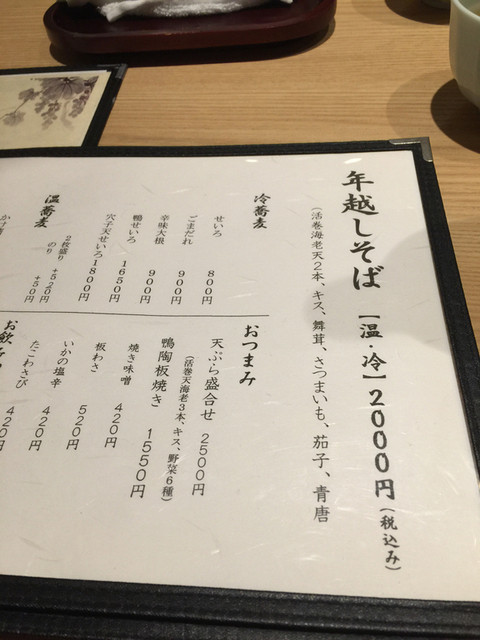 年越しそば 【温・冷】2000円(税込み)
(活巻海老天2本、キス、舞茸、さつまいも、茄子、青唐
冷蕎麦
せいろ 800円
ごまだれ 900円
辛味大根 900円
鴨せいろ 1650円
穴子天せいろ1800円
2枚盛り +520円
のり +50円
温蕎麦
おつまみ
天ぷら盛合せ 2500円
(活巻天海老3本、キス、野菜6種)
鴨陶板焼き 1550円
焼き味噌 420円
板わさ 520円
いかの塩辛 420円
たこわさび 420円